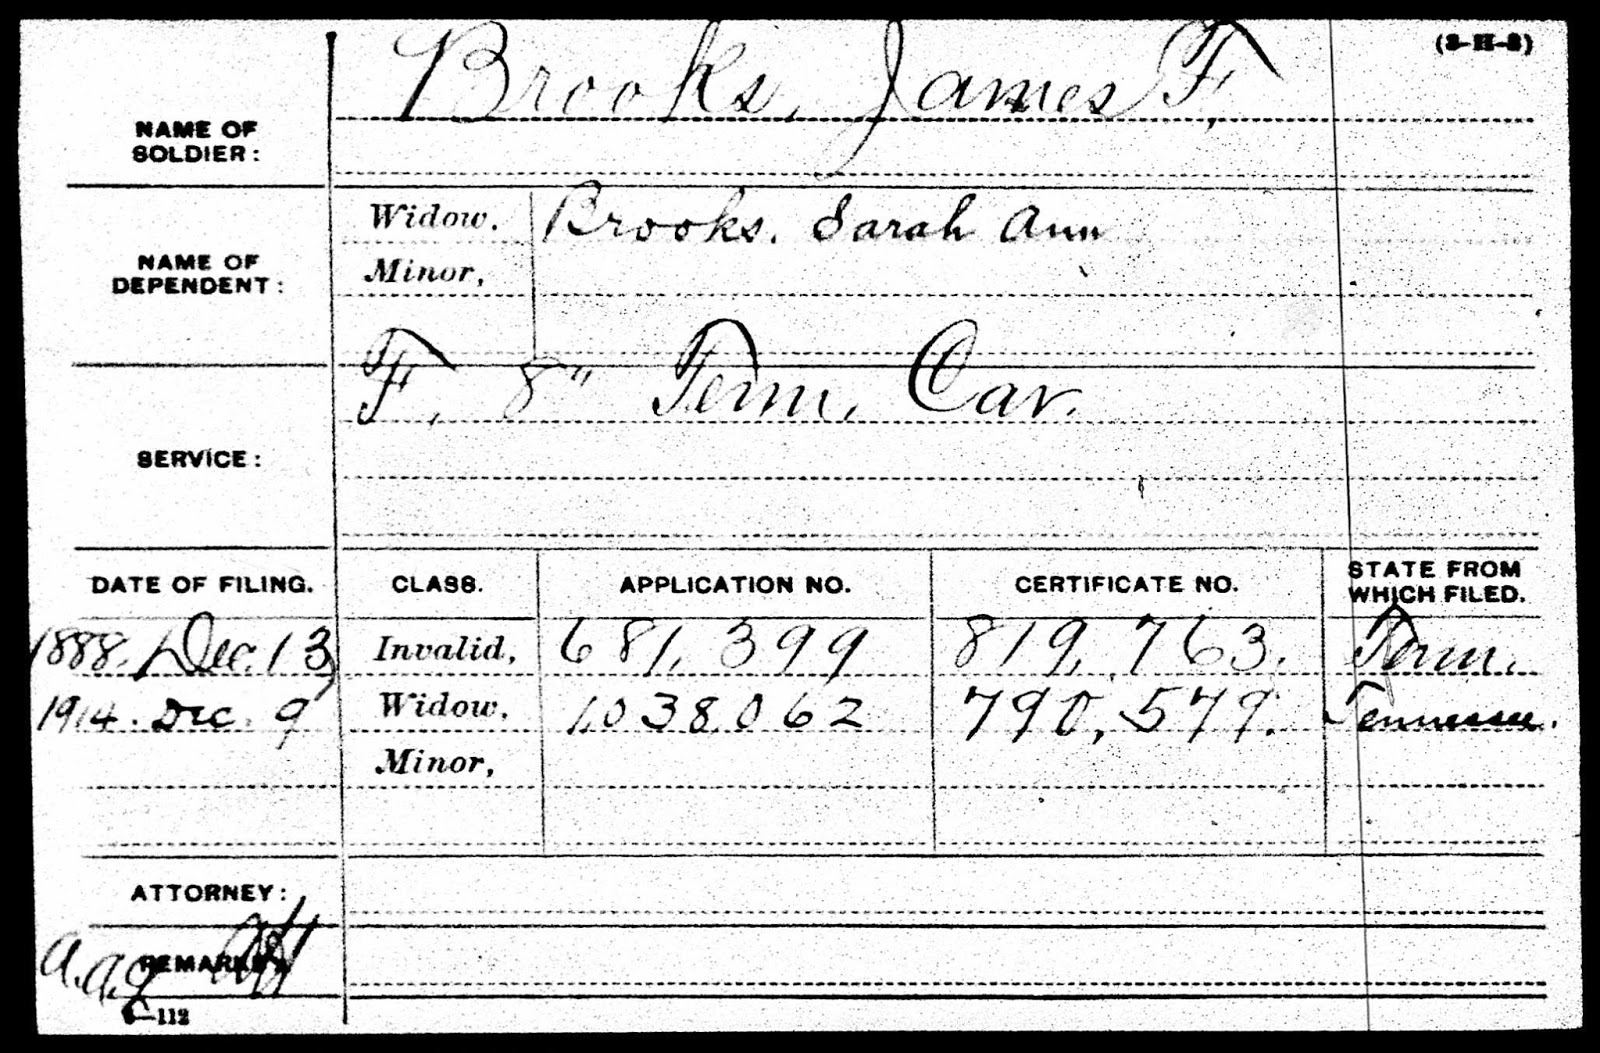 (3-H-3)
Brooks, James F,
NAME OF
SOLDIER:
Widow. Brooks. Sarah Ann
NAME OF
DEPENDENT:
Minor,
F, 8" Tenn, Cav.
SERVICE:
DATE OF FILING. CLASS. APPLICATION NO. CERTIFICATE NO. STATE FROM WHICH FILED.
1888. Dec. 13 Invalid, 681,399 819,763. Tenn.
1914. Dec. 9 Widow, 1,038,062 790,579. Tennessee.
Minor,
ATTORNEY:
a.a.g REMARKS:
—112